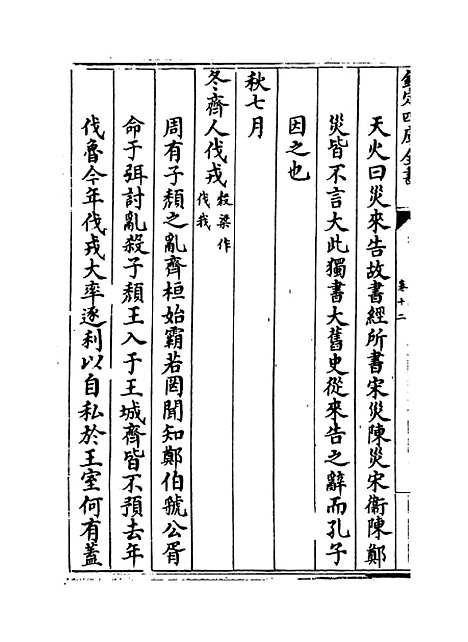 欽定四庫全書
卷十二
天火曰災來告故書經所書宋災陳災宋衞陳鄭
災皆不言大此獨書大舊史從來告之辭而孔子
因之也
秋七月
冬齊人伐戎穀梁作伐我
周有子頽之亂齊桓始霸若罔聞知鄭伯虢公胥
命于弭討亂殺子頽王入于王城齊皆不預去年
伐魯今年伐戎大率逐利以自私於王室何有蓋